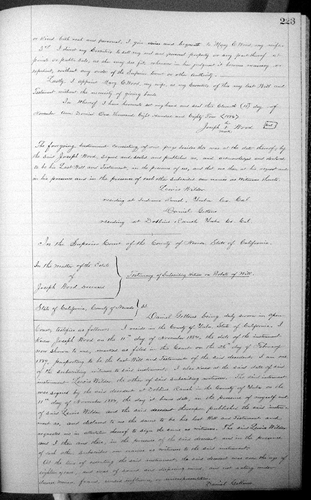 223
or kind both real and personal, I give devise and bequeath to Mary C. Wood, my wife
3rd I direct my Executrix to sell any and all personal property or any part thereof at
private or public sale, as she may see fit, whenever in her judgment it becomes necessary or
expedient, without any order of the Superior Court or other authority.
Lastly I appoint Mary C. Wood, my wife, as my Executrix of this my last Will and
Testament without the necessity of giving bonds.
In Whereof I have hereunto set my hand and seal this Eleventh (11) day of
November Anno Domini One Thousand Eight Hundred and Eighty
Joseph Wood Seal
mark
The foregoing instrument consisting of one page besides this was at the date thereof, by
the said Joseph Wood, signed and sealed and published as and acknowledged and declared
to be his Last Will and Testament, in the presence of us, and that we, here at his request and
in his presence and in the presence of each other subscribe our names as witnesses hereto.
Lewis Wilder
residing at Indiana Ranch, Yuba Co. Cal.
Daniel
residing at Dobbins Ranch Yuba Co. Cal.
In the Superior Court of the County of Nevada, State of California.
In the Matter of the Estate
of
Joseph Wood, deceased
Testimony of Subscribing Witness on Probate of Will.
State of California, County of Nevada } ss
Daniel being duly sworn in open
Court, testifies as follows: I reside in the County of Yuba State of California. I
knew Joseph Wood on the 11th day of November 1880, the date of the instrument
now shown to me, marked as filed in this Court on the day of February
purporting to be the last Will and Testament of the said decedent. I am one
of the subscribing witnesses to said instrument. I also knew at the said date of said
instrument Lewis Wilder, the other of said subscribing witnesses. The said instrument
was signed by the said decedent at Dobbins Ranch in the County of Yuba on the
11th day of November 1880, the day it bears date, in the presence of myself and
of said Lewis Wilder, and the said decedent thereupon published the said instru-
ment as, and declared to us the same to be, his last Will and Testament and
requested us in attestation thereof to sign the same as witnesses. The said Lewis Wilder
and I then and there, in the presence of the said decedent and in the presence
of each other, subscribed our names as witnesses to the said instrument.
At the time of executing the said instrument, the said decedent was over the age of
eighteen years and was of sound and disposing mind, and not acting under
duress, menace, fraud, undue influence or misrepresentation.
Daniel